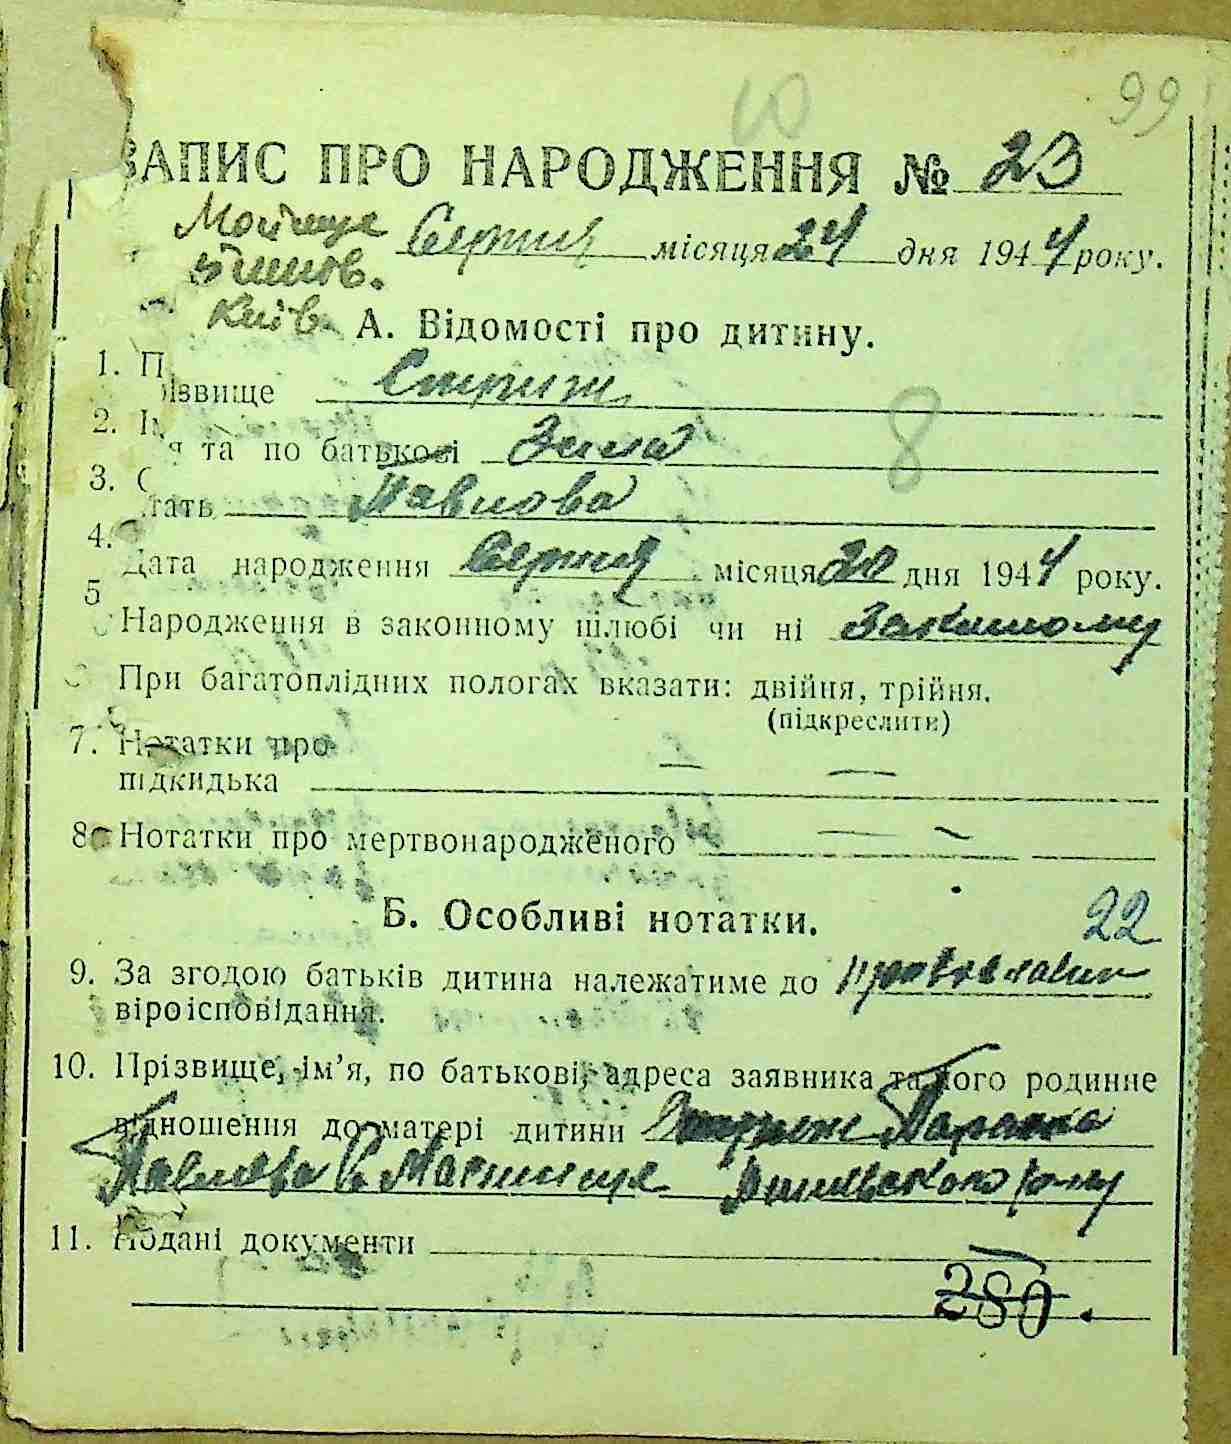 99
10
ЗАПИС ПРО НАРОДЖЕННЯ № 23
Серпня місяця 24 дня 1944 року.
Київ.
А. Відомості про дитину.
1. Прізвище Стриж
2. Ім'я та по батькові Зина
3. Стать Павлова
8
4. Дата народження Серпня місяця 20 дня 1944 року.
5 Народження в законному шлюбі чи ні Законному
6 При багатоплідних пологах вказати: двійня, трійня.
(підкреслити)
7. Нотатки про
підкидька — —
8. Нотатки про мертвонародженого — —
Б. Особливі нотатки.
22
9. За згодою батьків дитина належатиме до православн
віроісповідання.
10. Прізвище, ім’я, по батькові, адреса заявника та його родинне
відношення до матері дитини Стриж Параска
Павлова С
11. Подані документи
280.